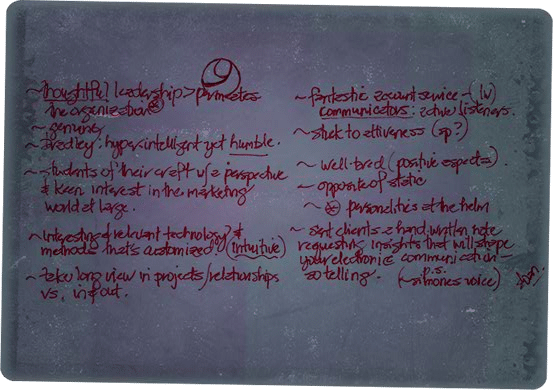 9
~ thoughtful leadership > permeates
the organization
~ genuine
~ Bradley: hyper intelligent yet humble.
~ students of their craft w/ a perspective
& keen interest in the marketing
world at large.
~ interesting & relevant technology? &
methods that's customized? (intuitive)
~ take long view in projects/relationships
vs. in & out.
~ fantastic account service - (lv)
communicators: active listeners.
~ stick to ittiveness (sp?)
~ well-bred (positive aspects).
~ opposite of static
~ personalities at the helm
~ sent clients a hand written note
requesting insights that will shape
your electronic communication -
so telling.
p.s.
(~ simone's voice)